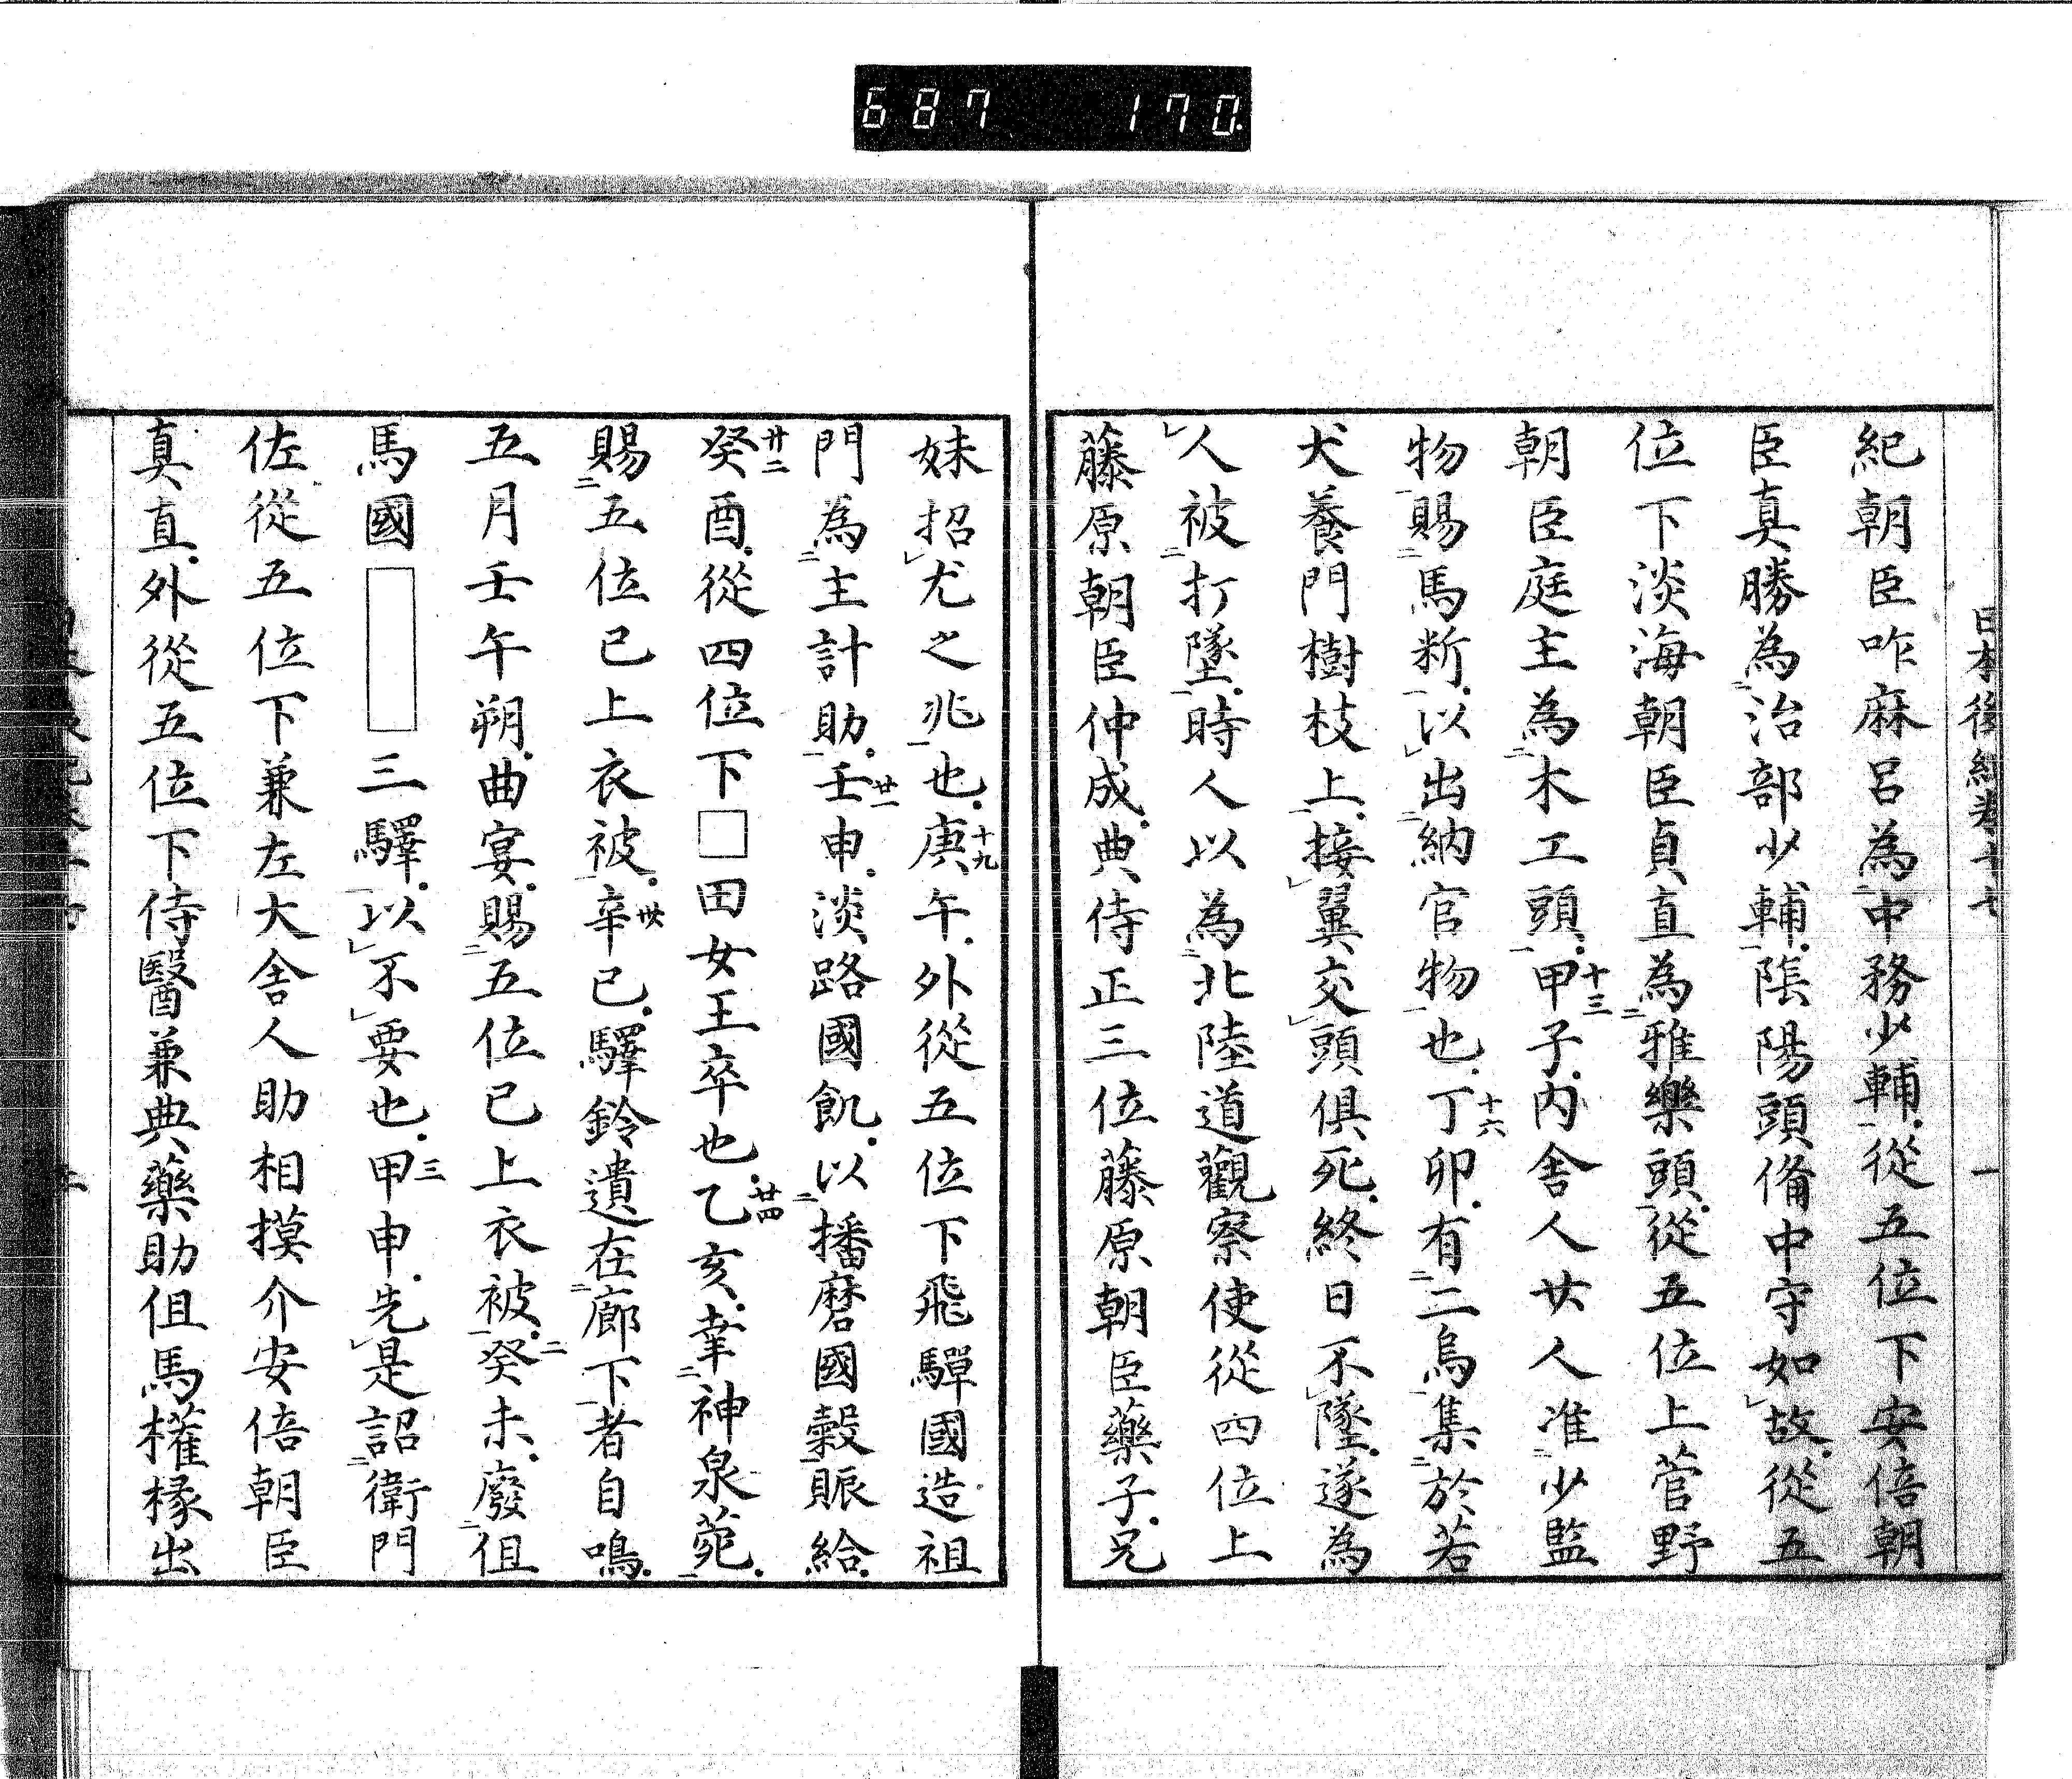 687 170
日本後紀卷十七 一
紀朝臣咋麻呂為中務少輔從五位下安倍朝
臣真勝為治部少輔陰陽頭俻中守如故從五
位下淡海朝臣貞直為雅樂頭從五位上菅野
朝臣庭主為木工頭十三甲子内舍人廿人准少監
物賜馬断以出納官物也十六丁卯有二烏集於若
犬養門樹枝上接翼交頭俱死終日不墜遂為
人被打墜時人以為北陸道觀察使從四位上
藤原朝臣仲成典侍正三位藤原朝臣藥子兄
妹招尤之兆也十九庚午外從五位下飛驒國造祖
門為主計助廿一壬申淡路國飢以播磨國穀賑給
廿二癸酉從四位下□田女王卒也廿四乙亥幸神泉菀
賜五位已上衣被卅辛已驛鈴遺在廊下者自鳴
五月壬午朔曲宴賜五位已上衣被二癸未廢伹
馬國□三驛以不要也三甲申先是詔衛門
佐從五位下兼左大舍人助相摸介安倍朝臣
真直外從五位下侍醫兼典藥助伹馬權椽出